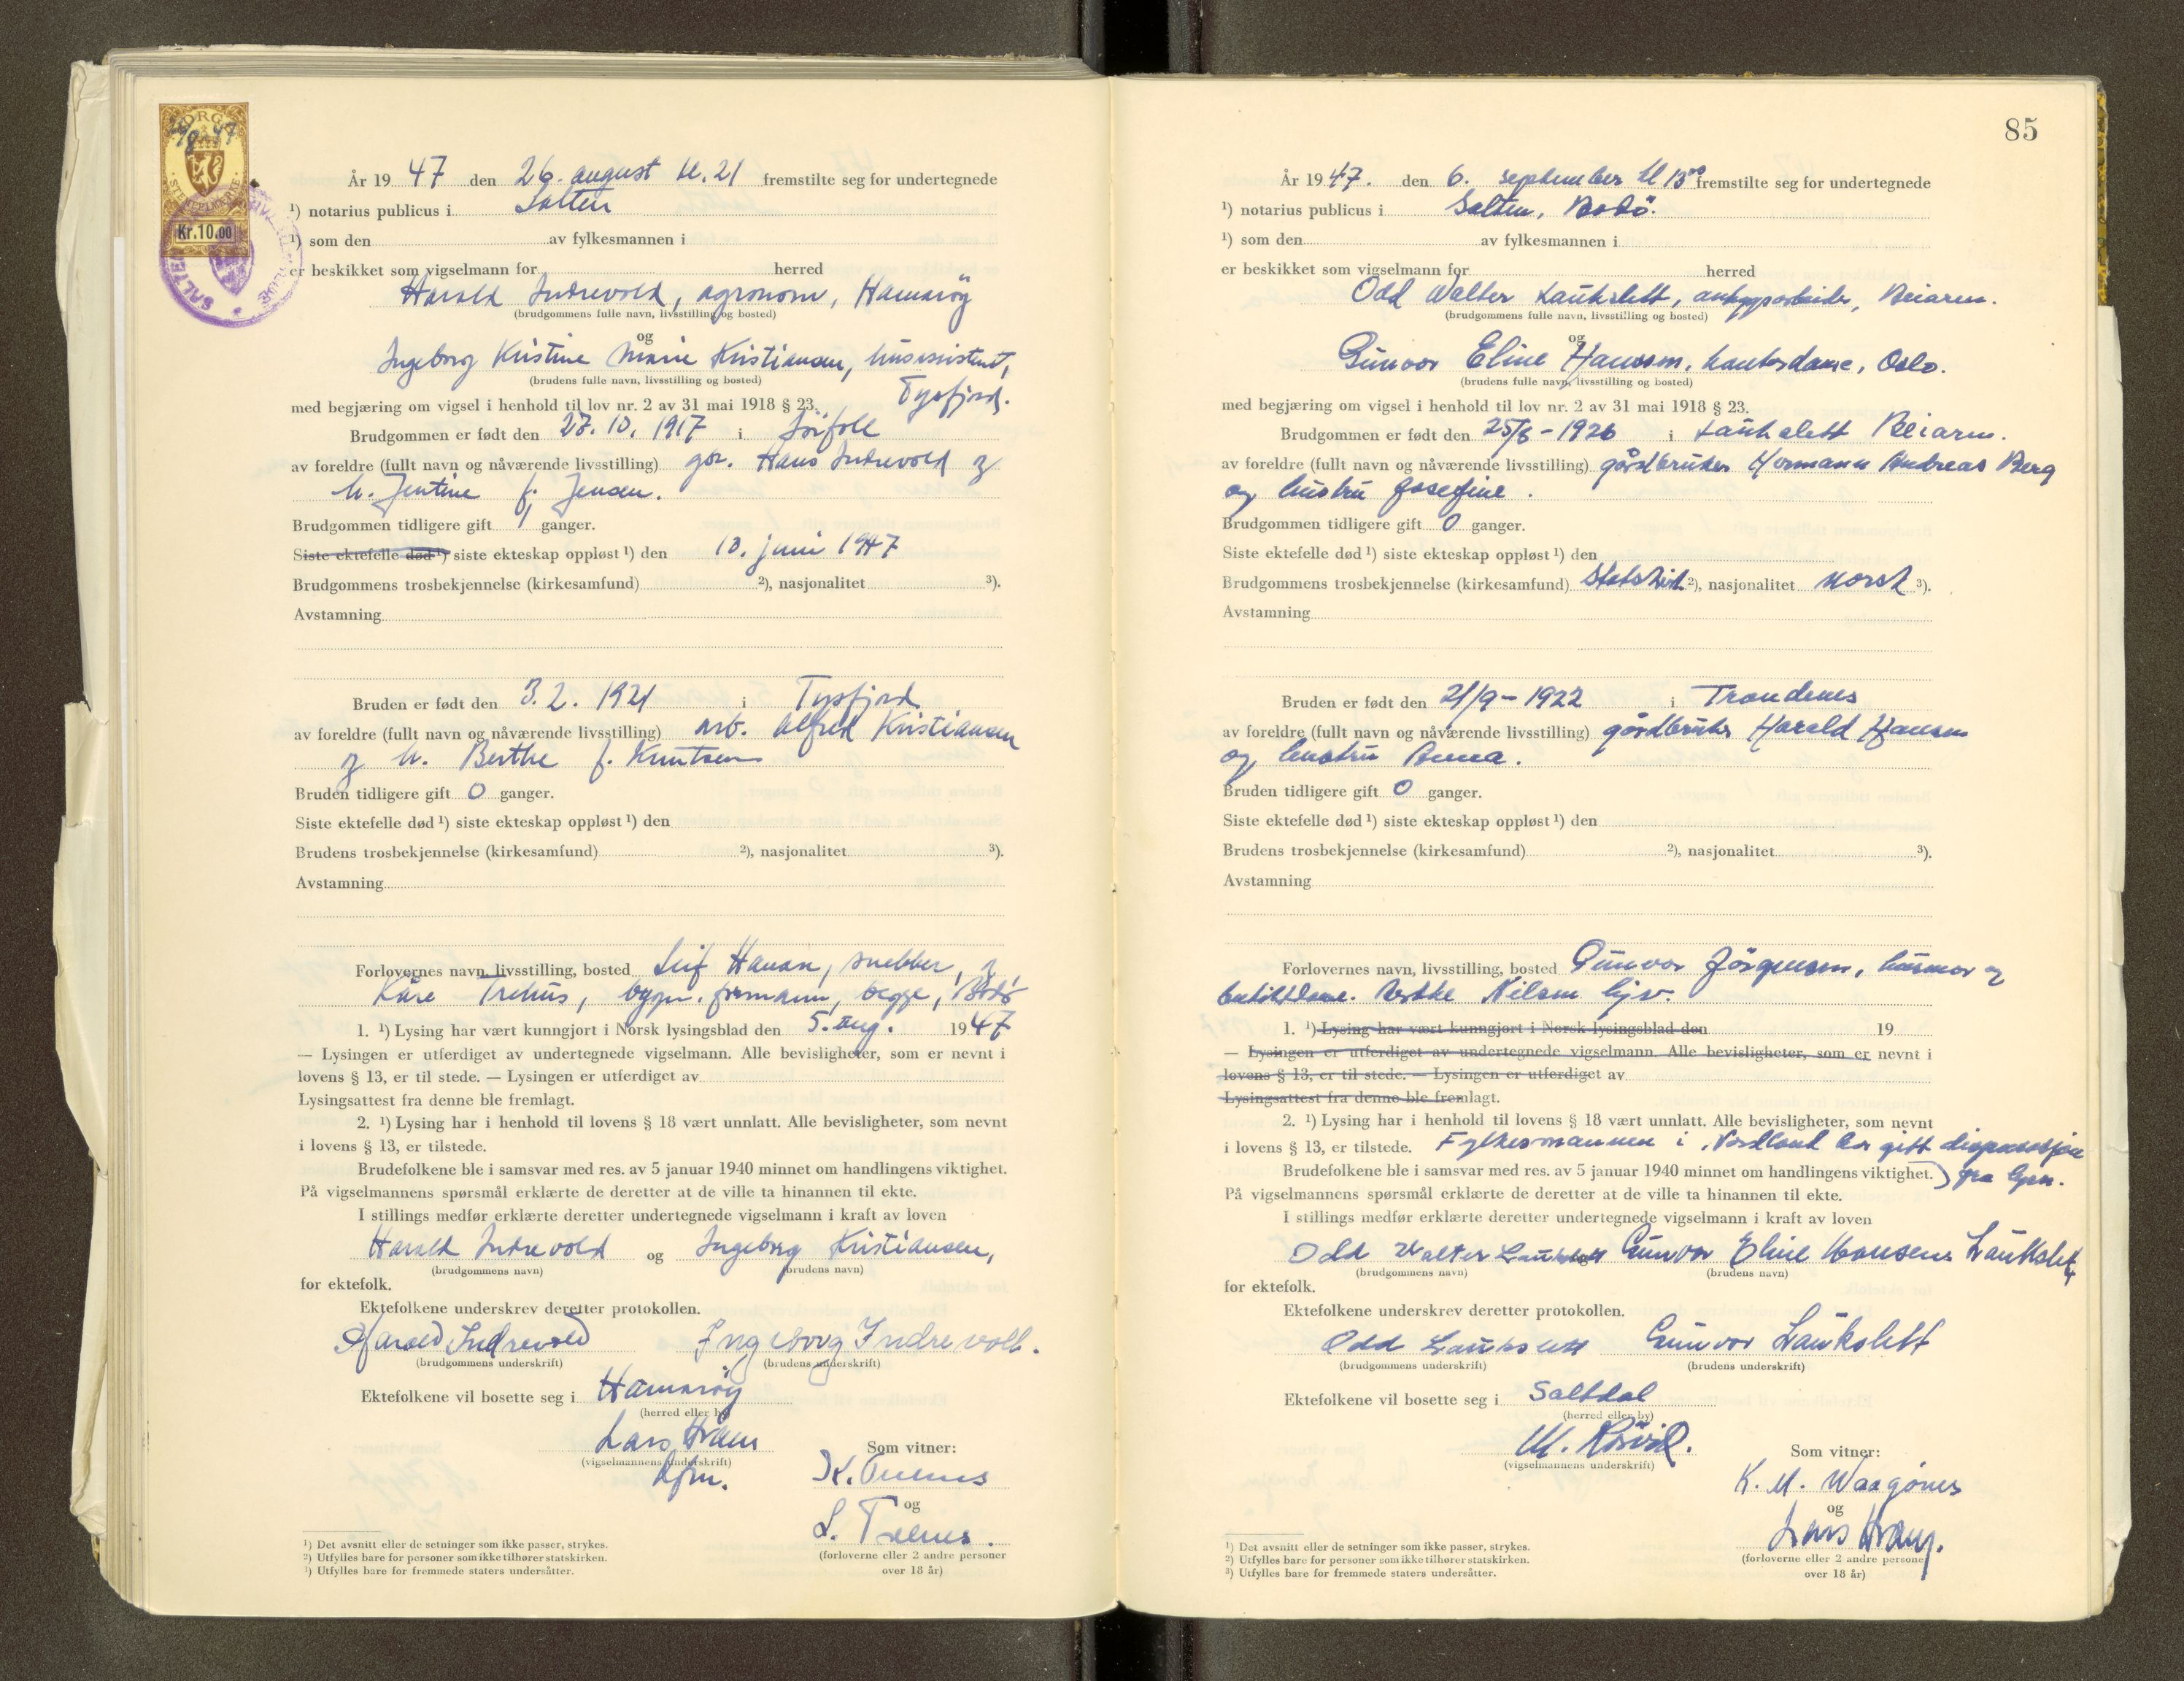 NORGE
26/8 47
STEMPELMERKE
Kr.10.00
År 19 47 den 26. august kl. 21 fremstilte seg for undertegnede
¹) notarius publicus i Salten
¹) som den av fylkesmannen i
er beskikket som vigselmann for herred
Harald Indrevold, agronom, Hamarøy
(brudgommens fulle navn, livsstilling og bosted)
og
Ingeborg Kristine Marie Kristiansen, husassistent,
(brudens fulle navn, livsstilling og bosted)
Tysfjord.
med begjæring om vigsel i henhold til lov nr. 2 av 31 mai 1918 § 23.
Brudgommen er født den 27. 10. 1917 i Sørfold
av foreldre (fullt navn og nåværende livsstilling) gbr. Hans Indrevold og
h. Jentine f. Jensen.
Brudgommen tidligere gift 1 ganger.
Siste ektefelle død ¹) siste ekteskap oppløst ¹) den 10. juni 1947
Brudgommens trosbekjennelse (kirkesamfund) ²), nasjonalitet ³).
Avstamning
Bruden er født den 3. 2. 1921 i Tysfjord
av foreldre (fullt navn og nåværende livsstilling) arb. Alfred Kristiansen
og h. Berthe f. Knutsen
Bruden tidligere gift 0 ganger.
Siste ektefelle død ¹) siste ekteskap oppløst ¹) den
Brudens trosbekjennelse (kirkesamfund) ²), nasjonalitet ³).
Avstamning
Forlovernes navn, livsstilling, bosted Leif Hanan, snekker, og
Kåre Trehus, bygn. formann, begge, Bodø
1. ¹) Lysing har vært kunngjort i Norsk lysingsblad den 5. aug. 1947
— Lysingen er utferdiget av undertegnede vigselmann. Alle bevisligheter, som er nevnt i
lovens § 13, er til stede. — Lysingen er utferdiget av
Lysingsattest fra denne ble fremlagt.
2. ¹) Lysing har i henhold til lovens § 18 vært unnlatt. Alle bevisligheter, som nevnt
i lovens § 13, er tilstede.
Brudefolkene ble i samsvar med res. av 5 januar 1940 minnet om handlingens viktighet.
På vigselmannens spørsmål erklærte de deretter at de ville ta hinannen til ekte.
I stillings medfør erklærte deretter undertegnede vigselmann i kraft av loven
Harald Indrevold og Ingeborg Kristiansen,
(brudgommens navn) (brudens navn)
for ektefolk.
Ektefolkene underskrev deretter protokollen.
Harald Indrevold Ingeborg Indrevold.
(brudgommens underskrift) (brudens underskrift)
Ektefolkene vil bosette seg i Hamarøy
(herred eller by)
Lars Hram
(vigselmannens underskrift)
Som vitner:
og
(forloverne eller 2 andre personer
over 18 år)
¹) Det avsnitt eller de setninger som ikke passer, strykes.
²) Utfylles bare for personer som ikke tilhører statskirken.
³) Utfylles bare for fremmede staters undersåtter.
85
År 19 47. den 6. september kl 13⁰⁰ fremstilte seg for undertegnede
¹) notarius publicus i Salten, Bodö.
¹) som den av fylkesmannen i
er beskikket som vigselmann for herred
Odd Walter Laukslett, anleggsarbeider, Beiarn.
(brudgommens fulle navn, livsstilling og bosted)
og
Gunvor Eline Hanssen, kontordame, Oslo.
(brudens fulle navn, livsstilling og bosted)
med begjæring om vigsel i henhold til lov nr. 2 av 31 mai 1918 § 23.
Brudgommen er født den 25/8 - 1926 i Laukslett Beiarn.
av foreldre (fullt navn og nåværende livsstilling) gårdbruker Hermann Andreas Berg
og hustru Josefine.
Brudgommen tidligere gift 0 ganger.
Siste ektefelle død ¹) siste ekteskap oppløst ¹) den
Brudgommens trosbekjennelse (kirkesamfund) Statskirk ²), nasjonalitet norsk ³).
Avstamning
Bruden er født den 21/9 - 1922 i Trondenes
av foreldre (fullt navn og nåværende livsstilling) gårdbruker Harald Hansen
og hustru Anna.
Bruden tidligere gift 0 ganger.
Siste ektefelle død ¹) siste ekteskap oppløst ¹) den
Brudens trosbekjennelse (kirkesamfund) ²), nasjonalitet ³).
Avstamning
Forlovernes navn, livsstilling, bosted Gunvor Jörgensen, husmor og
Nilsen
1. ¹) Lysing har vært kunngjort i Norsk lysingsblad den 19
— Lysingen er utferdiget av undertegnede vigselmann. Alle bevisligheter, som er nevnt i
lovens § 13, er til stede. — Lysingen er utferdiget av
Lysingsattest fra denne ble fremlagt.
2. ¹) Lysing har i henhold til lovens § 18 vært unnlatt. Alle bevisligheter, som nevnt
i lovens § 13, er tilstede. Fylkesmannen i Nordland har gitt dispensasjon
Brudefolkene ble i samsvar med res. av 5 januar 1940 minnet om handlingens viktighet.) fra lysn.
På vigselmannens spørsmål erklærte de deretter at de ville ta hinannen til ekte.
I stillings medfør erklærte deretter undertegnede vigselmann i kraft av loven
Odd Walter Laukslett og Gunvor Eline Hansen Laukslett
(brudgommens navn) (brudens navn)
for ektefolk.
Ektefolkene underskrev deretter protokollen.
Odd Laukslett Gunvor Laukslett
(brudgommens underskrift) (brudens underskrift)
Ektefolkene vil bosette seg i Saltdal
(herred eller by)
(vigselmannens underskrift)
Som vitner:
K. M. Waagönes
og
Lars Hram.
(forloverne eller 2 andre personer
over 18 år)
¹) Det avsnitt eller de setninger som ikke passer, strykes.
²) Utfylles bare for personer som ikke tilhører statskirken.
³) Utfylles bare for fremmede staters undersåtter.